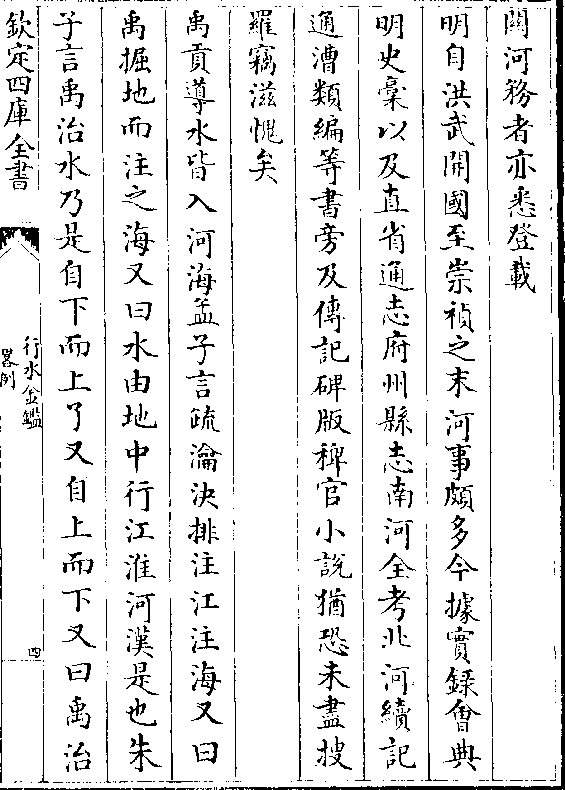 關河務者亦悉登載
明自洪武開國至崇禎之末河事頗多今據實録㑹典
明史稾以及直省通志府州縣志南河全考北河續記
通漕類編等書旁及傳記碑版稗官小説猶恐未盡捜
羅竊滋愧矣
禹貢導水皆入河海孟子言疏瀹決排注江注海又曰
禹掘地而注之海又曰水由地中行江淮河漢是也朱
子言禹治水乃是自下而上了又自上而下又曰禹治
欽定四庫全書
行水金鑑
畧例
四